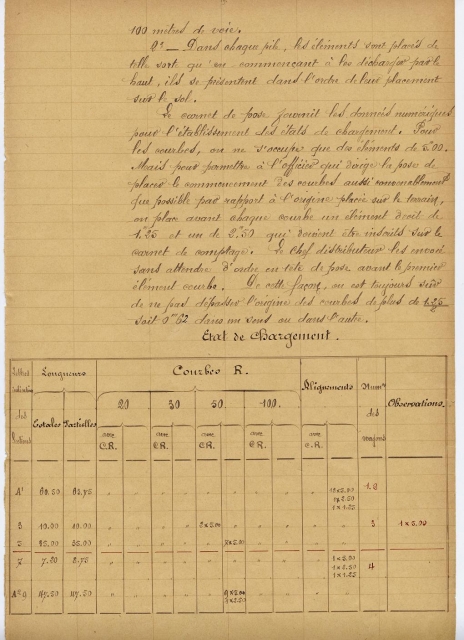 100 mètres de voie.
2° — Dans chaque pile, les éléments sont placés de
telle sorte qu'en commençant à les décharger par le
haut, ils se présentent dans l'ordre de leur placement
sur le sol.
Le carnet de pose fournit les données numériques
pour l'établissement des états de chargement. Pour
les courbes, on ne s'occupe que des éléments de 5.00.
Mais pour permettre à l'officier qui dirige la pose de
placer le commencement des courbes aussi convenablement
que possible par rapport à l'origine placée sur le terrain,
on place avant chaque courbe un élément droit de
1.25 et un de 2.50 qui doivent être inscrits sur le
carnet de comptage. Le Chef distributeur les envoie
sans attendre d'ordre en tête de pose avant le premier
élément courbe. De cette façon, on est toujours sûr
de ne pas dépasser l'origine des courbes de plus de 1.25
soit 0m62 dans un sens ou dans l'autre.
Etat de Chargement.
Longueurs Courbes R. Alignements Numos des wagons Observations.
Totales Partielles 20 30 50 100
avec C.R. avec C.R. avec C.R. avec C.R. avec C.R.
A' 68.50 63.75
1 x 2.50
1 x 1.25
10.00 10.00 2x5.00 3 1 x 5.00
35.00 35.00 7x5.00
7.20 8.75 1 x 5.00 4
1 x 2.50
1 x 1.25
47.50 47.50 9x5.00
1x2.50